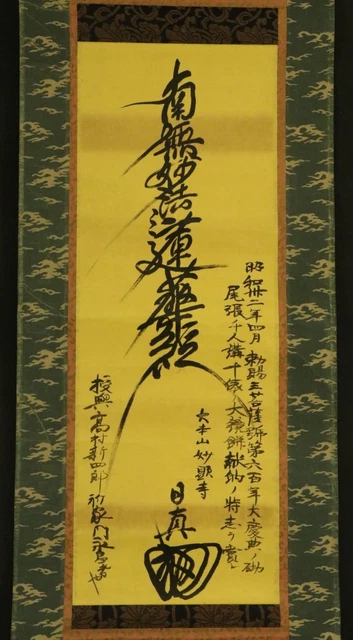 南無妙法蓮華経
昭和卅二年四月 勅賜三菩薩號第六百年大慶典ノ砌
尾張千人講千俵ノ大鏡餅献納ノ特志ヲ賞シ
大本山妙顕寺
日真
授興 高村新四郎